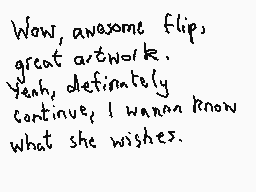 Wow, awasome flip,
great artwork.
Yeah, definately
continue, I wanna know
what she wishes.